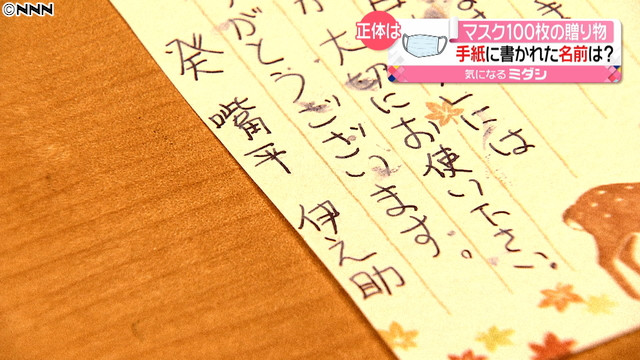 ©NNN
正体は
マスク100枚の贈り物
手紙に書かれた名前は?
気になるミダシ
には
大切にお使い下さい。
がとうございます。
発 嘴平 伊之助